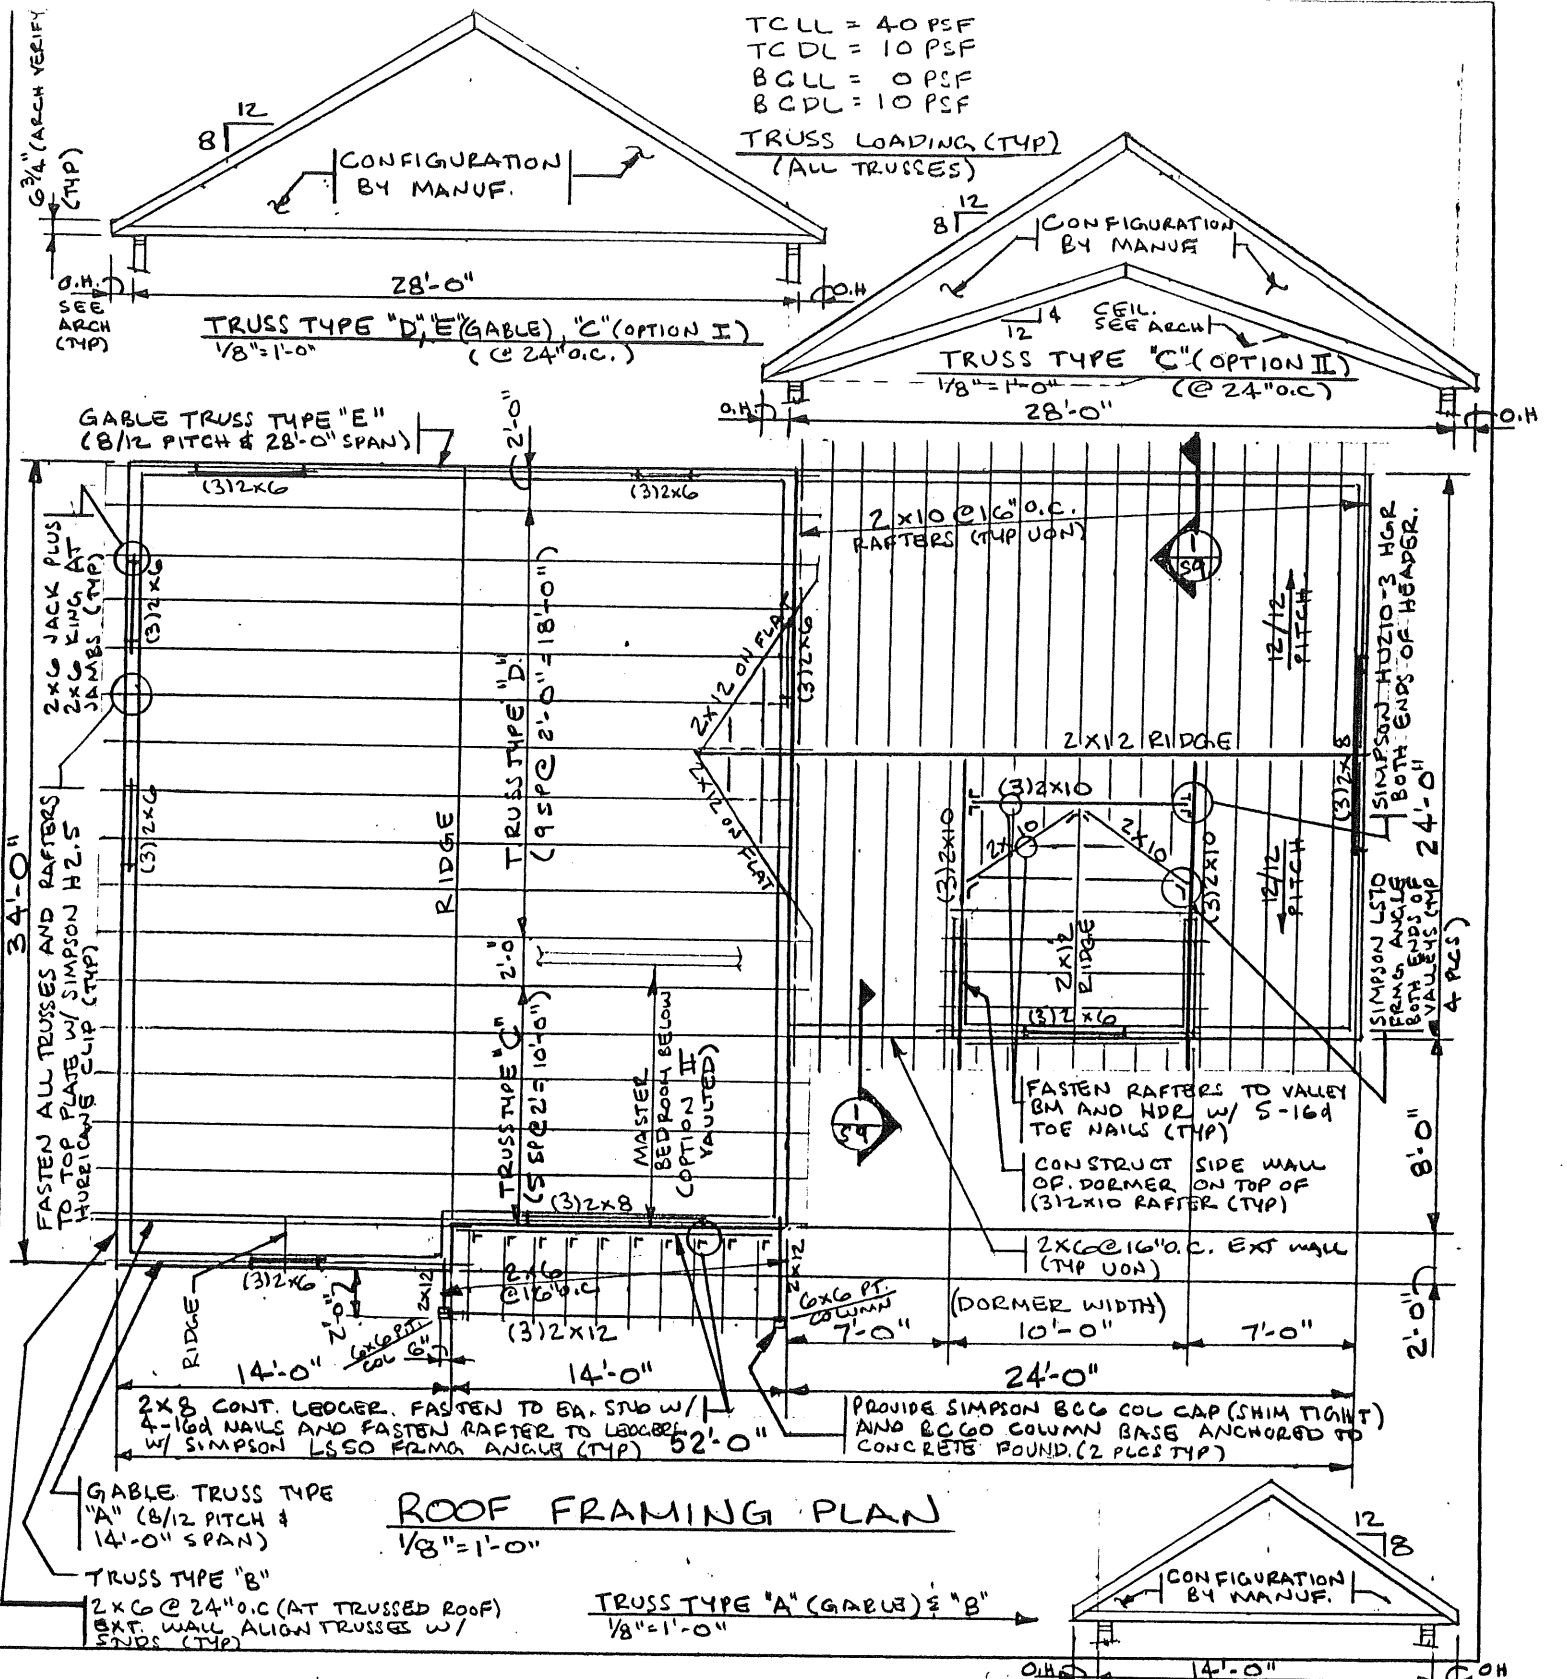 6 3/4" (ARCH VERIFY
(TYP)
TCLL = 40 PSF
TCDL = 10 PSF
BCLL = 0 PSF
BCDL = 10 PSF
TRUSS LOADING (TYP)
(ALL TRUSSES)
12
8
CONFIGURATION
BY MANUF.
O.H.
SEE
ARCH
(TYP)
28'-0"
O.H
TRUSS TYPE "D","E"(GABLE), "C"(OPTION I)
1/8"=1'-0"
(@ 24"O.C.)
12
8
CONFIGURATION
BY MANUF
12
4
CEIL.
SEE ARCH
TRUSS TYPE "C"(OPTION II)
1/8"=1'-0"
(@ 24"O.C)
O.H.
28'-0"
O.H
GABLE TRUSS TYPE "E"
(8/12 PITCH & 28'-0" SPAN)
2'-0"
(3)2x6
(3)2x6
2x6 JACK PLUS
2x6 KING AT
JAMBS (TYP)
(3)2x6
(3)2x6
34'-0"
FASTEN ALL TRUSSES AND RAFTERS
TO TOP PLATE W/ SIMPSON H2.5
HURRICANE CLIP (TYP)
RIDGE
TRUSS TYPE "D"
(9 SP @ 2'-0" = 18'-0")
2'-0"
TRUSS TYPE "C"
(5 SP@2'=10'-0")
MASTER
BEDROOM BELOW
(OPTION II
VAULTED)
2x10 @16"O.C.
RAFTERS (TYP UON)
1
S9
12/12
PITCH
2x12 ON FLAT
2x12 ON FLAT
(3)2x6
2x12 RIDGE
(3)2x10
(3)2x10
2x10
2x10
(3)2x10
2x12
RIDGE
(3)2x6
12/12
PITCH
(3)2x8
SIMPSON HU210-3 HGR
BOTH ENDS OF HEADER.
24'-0"
SIMPSON LS70
FRMG. ANGLE
BOTH ENDS OF
VALLEYS (TYP
4 PLCS)
1
S9
FASTEN RAFTERS TO VALLEY
BM AND HDR W/ 5-16d
TOE NAILS (TYP)
CONSTRUCT SIDE WALL
OF DORMER ON TOP OF
(3)2x10 RAFTER (TYP)
2x6@16"O.C. EXT WALL
(TYP UON)
8'-0"
2'-0"
(3)2x8
(3)2x6
RIDGE
2'-0"
2x12
2x6
@16"O.C
2x12
(3)2x12
6x6 P.T.
COL
6"
6x6 PT.
COLUMN
(DORMER WIDTH)
7'-0"
10'-0"
7'-0"
14'-0"
14'-0"
24'-0"
2x8 CONT. LEDGER. FASTEN TO EA. STUD W/
4-16d NAILS AND FASTEN RAFTER TO LEDGER
W/ SIMPSON LS50 FRMG ANGLE (TYP)
52'-0"
PROVIDE SIMPSON BC6 COL CAP (SHIM TIGHT)
AND BC60 COLUMN BASE ANCHORED TO
CONCRETE FOUND. (2 PLCS TYP)
GABLE TRUSS TYPE
"A" (8/12 PITCH &
14'-0" SPAN)
TRUSS TYPE "B"
2x6 @ 24"O.C (AT TRUSSED ROOF)
EXT. WALL ALIGN TRUSSES W/
STUDS (TYP)
ROOF FRAMING PLAN
1/8"=1'-0"
TRUSS TYPE "A" (GABLE) & "B"
1/8"=1'-0"
12
8
CONFIGURATION
BY MANUF.
O.H
14'-0"
OH